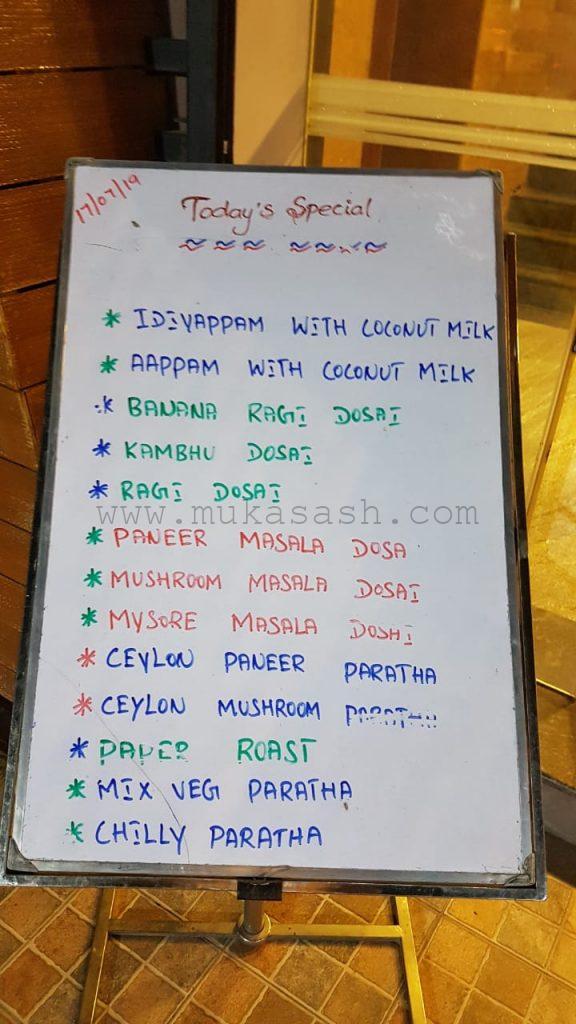 17/07/19
Today's Special
* IDIYAPPAM WITH COCONUT MILK
* AAPPAM WITH COCONUT MILK
* BANANA RAGI DOSAI
* KAMBHU DOSAI
* RAGI DOSAI
www.mukasash.com
* PANEER MASALA DOSA
* MUSHROOM MASALA DOSAI
* MYSORE MASALA DOSHI
* CEYLON PANEER PARATHA
* CEYLON MUSHROOM PARATHA
* PAPER ROAST
* MIX VEG PARATHA
* CHILLY PARATHA